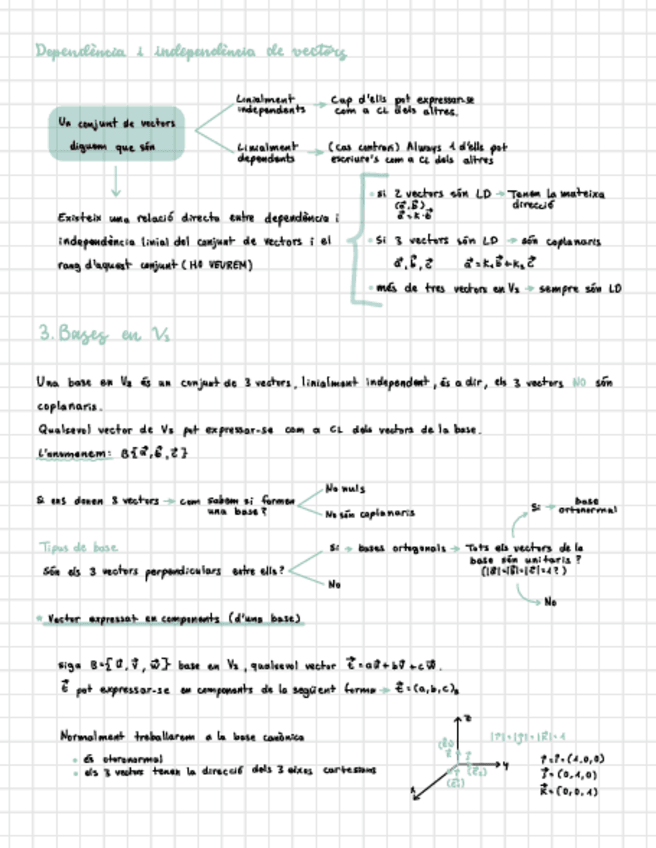 Dependència i independència de vectors
Un conjunt de vectors
diguem que són
Linialment
independents → Cap d'ells pot expressar-se
com a CL dels altres.
Linialment
dependents → (cas contrari) Always 1 d'ells pot
escriure's com a CL dels altres
Existeix una relació directa entre dependència i
independència linial del conjunt de vectors i el
rang d'aquest conjunt (HO VEUREM)
si 2 vectors són LD → Tenen la mateixa
direcció
(a⃗,b⃗)
a⃗=k·b⃗
Si 3 vectors són LD → són coplanaris
a⃗,b⃗,c⃗ a⃗=k₁b⃗+k₂c⃗
més de tres vectors en V₃ → sempre són LD
3. Bases en V₃
Una base en V₃ és un conjunt de 3 vectors, linialment independent, és a dir, els 3 vectors NO són
coplanaris.
Qualsevol vector de V₃ pot expressar-se com a CL dels vectors de la base.
L'anomenem: B{a⃗,b⃗,c⃗}
Si ens donen 3 vectors → com sabem si formen
una base?
No nuls
No són coplanaris
Tipus de base
Són els 3 vectors perpendiculars entre ells?
Si → bases ortogonals → Tots els vectors de la
base són unitaris?
(|a⃗|=|b⃗|=|c⃗|=1?)
No
Si → base
ortonormal
No
Vector expressat en components (d'una base)
siga B={u⃗,v⃗,w⃗} base en V₃, qualsevol vector t⃗=au⃗+bv⃗+cw⃗.
t⃗ pot expressar-se en components de la següent forma → t⃗=(a,b,c)ᵦ
Normalment treballarem a la base canònica
és otoronormal
els 3 vectors tenen la direcció dels 3 eixos cartesians
z
y
x
|i⃗|=|j⃗|=|k⃗|=1
i⃗=(1,0,0)
j⃗=(0,1,0)
k⃗=(0,0,1)